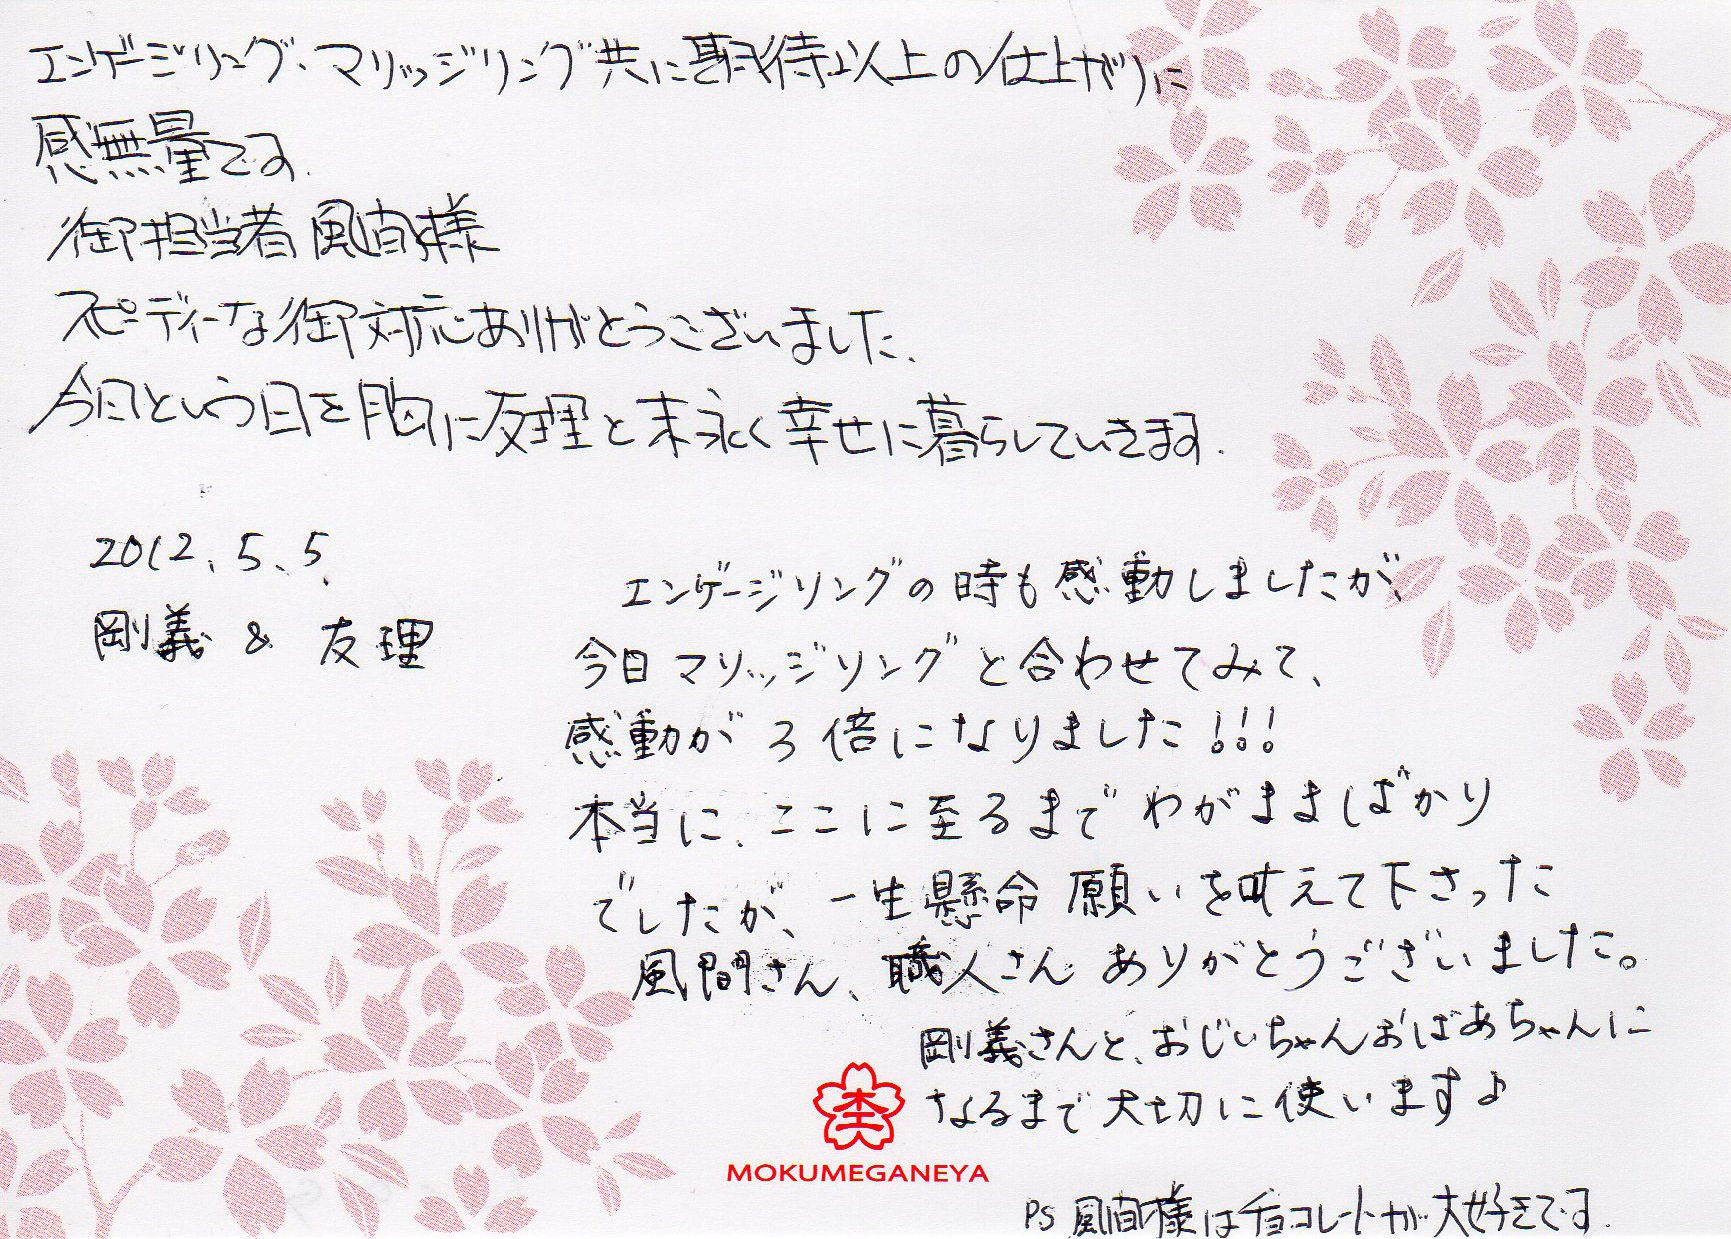 エンゲージリング、マリッジリング共に期待以上の仕上がりに
感無量です.
御担当者 風間様
スピーディーな御対応ありがとうございました.
今日という日を胸に友理と末永く幸せに暮らしていきます.
2012.5.5.
剛義 & 友理
エンゲージリングの時も感動しましたが、
今日マリッジリングと合わせてみて、
感動が3倍になりました!!!
本当に、ここに至るまでわがままばかり
でしたが、一生懸命願いを叶えて下さった
風間さん、職人さんありがとうございました。
剛義さんと、おじいちゃんおばあちゃんに
なるまで大切に使います♪
MOKUMEGANEYA
PS 風間様はチョコレートが大好きです.